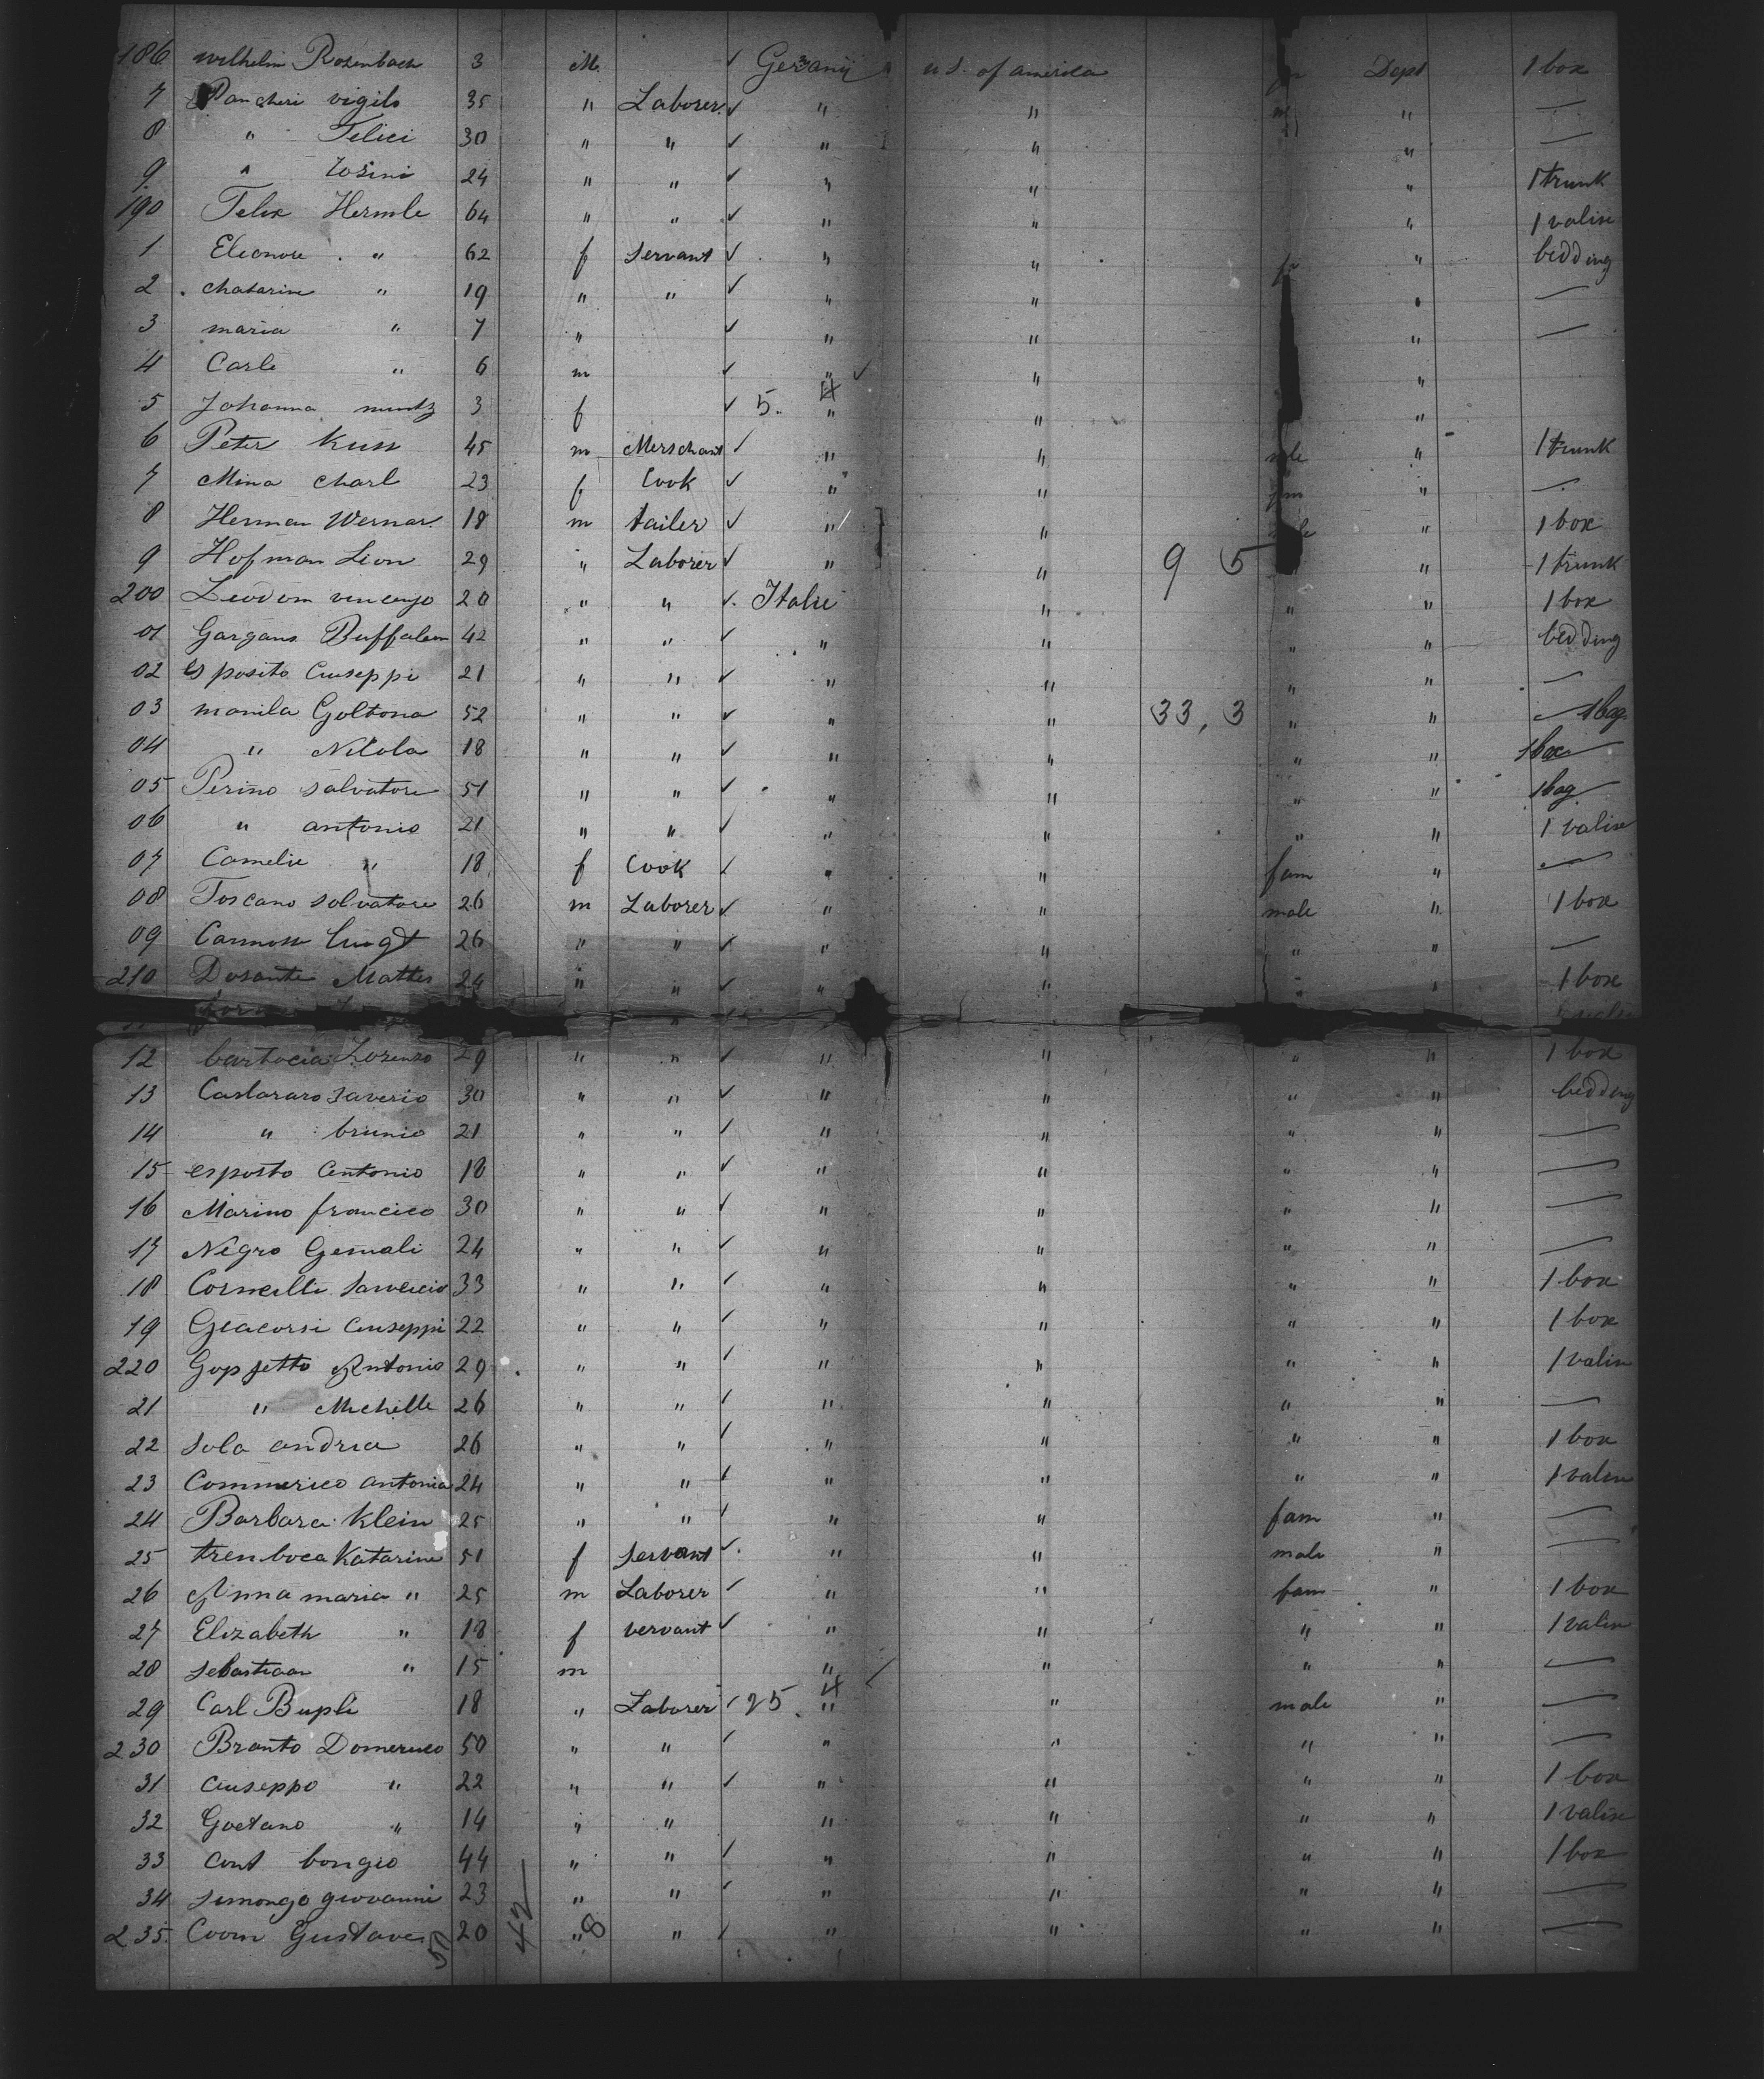 186 Wilhelm Rosenbach 3 M. ✓ Germanij U S. of america Dept 1 box
7 Pancheri vigilo 35 " Laborer ✓ " " m " —
8 " Felici 30 " " ✓ " " " —
9 " Rosini 24 " " ✓ " " " 1 trunk
190 Felix Hermle 64 " " ✓ " " " 1 valise
1 Eleonore " 62 f Servant ✓ " " " bedding
2 Chatarine " 19 " " ✓ " " " —
3 maria " 7 " ✓ " " " —
4 Carle " 6 m ✓ " ✓ " "
5 Johanna muntz 3 f ✓ 5. " " "
6 Peter Kuss 45 m Merschant ✓ " " male " 1 trunk
7 Mina Charl 23 f Cook ✓ " " fam " —
8 Herman Wernar 18 m tailer ✓ " " male " 1 box
9 Hofman Leon 29 " Laborer ✓ " " 9 5 " " 1 trunk
200 Leodom vincenzo 20 " " ✓ Italie " " " 1 box
01 Gargano Buffalem 42 " " ✓ " " " " bedding
02 Esposito Ciuseppi 21 " " ✓ " " " " —
03 manila Goltona 52 " " ✓ " " 33, 3 " " 1 bag
04 " Nicola 18 " " ✓ " " " " 1 box
05 Perino Salvatore 51 " " ✓ " " " " 1 bag
06 " antonio 21 " " ✓ " " " " 1 valise
07 Camelie " 18 f Cook ✓ " " fam " —
08 Toscano Solvatore 26 m Laborer ✓ " " male " 1 box
09 26 " " ✓ " " " " —
210 Dosante Matteo 24 " " ✓ " " " " 1 box
12 bartocia Lorenzo 29 " " ✓ " " " " 1 box
13 Castararo Saverio 30 " " ✓ " " " " bedding
14 " brunio 21 " " ✓ " " " " —
15 esposto Antonio 18 " " ✓ " " " " —
16 Marino francico 30 " " ✓ " " " " —
17 Negro Gemali 24 " " ✓ " " " " —
18 Cornelli Saverio 33 " " ✓ " " " " 1 box
19 Giacorsi Ciuseppi 22 " " ✓ " " " " 1 box
220 Gopfetto Antonio 29 " " ✓ " " " " 1 valise
21 " Michelle 26 " " ✓ " " " " —
22 Sola andrea 26 " " ✓ " " " " 1 box
23 Commerico antonia 24 " " ✓ " " " " 1 valise
24 Barbara Klein 25 " " ✓ " " fam " —
25 trenboca Katarine 51 f Servant ✓ " " male " —
26 Anna maria " 25 m Laborer ✓ " " fam " 1 box
27 Elizabeth " 18 f servant ✓ " " " " 1 valise
28 Sebastiaan " 15 m " ✓ " " " —
29 Carl Bupli 18 " Laborer ✓ 25 " " male " —
230 Branto Domenico 50 " " ✓ " " " " —
31 Ciuseppo " 22 " " ✓ " " " " 1 box
32 Goetano " 14 " " " " " " 1 valise
33 Cont bongio 44 " " ✓ " " " " 1 box
34 Simongo giovanni 23 " " ✓ " " " " —
235. Coorn Gustave 20 42 " 8 " ✓ " " " " —